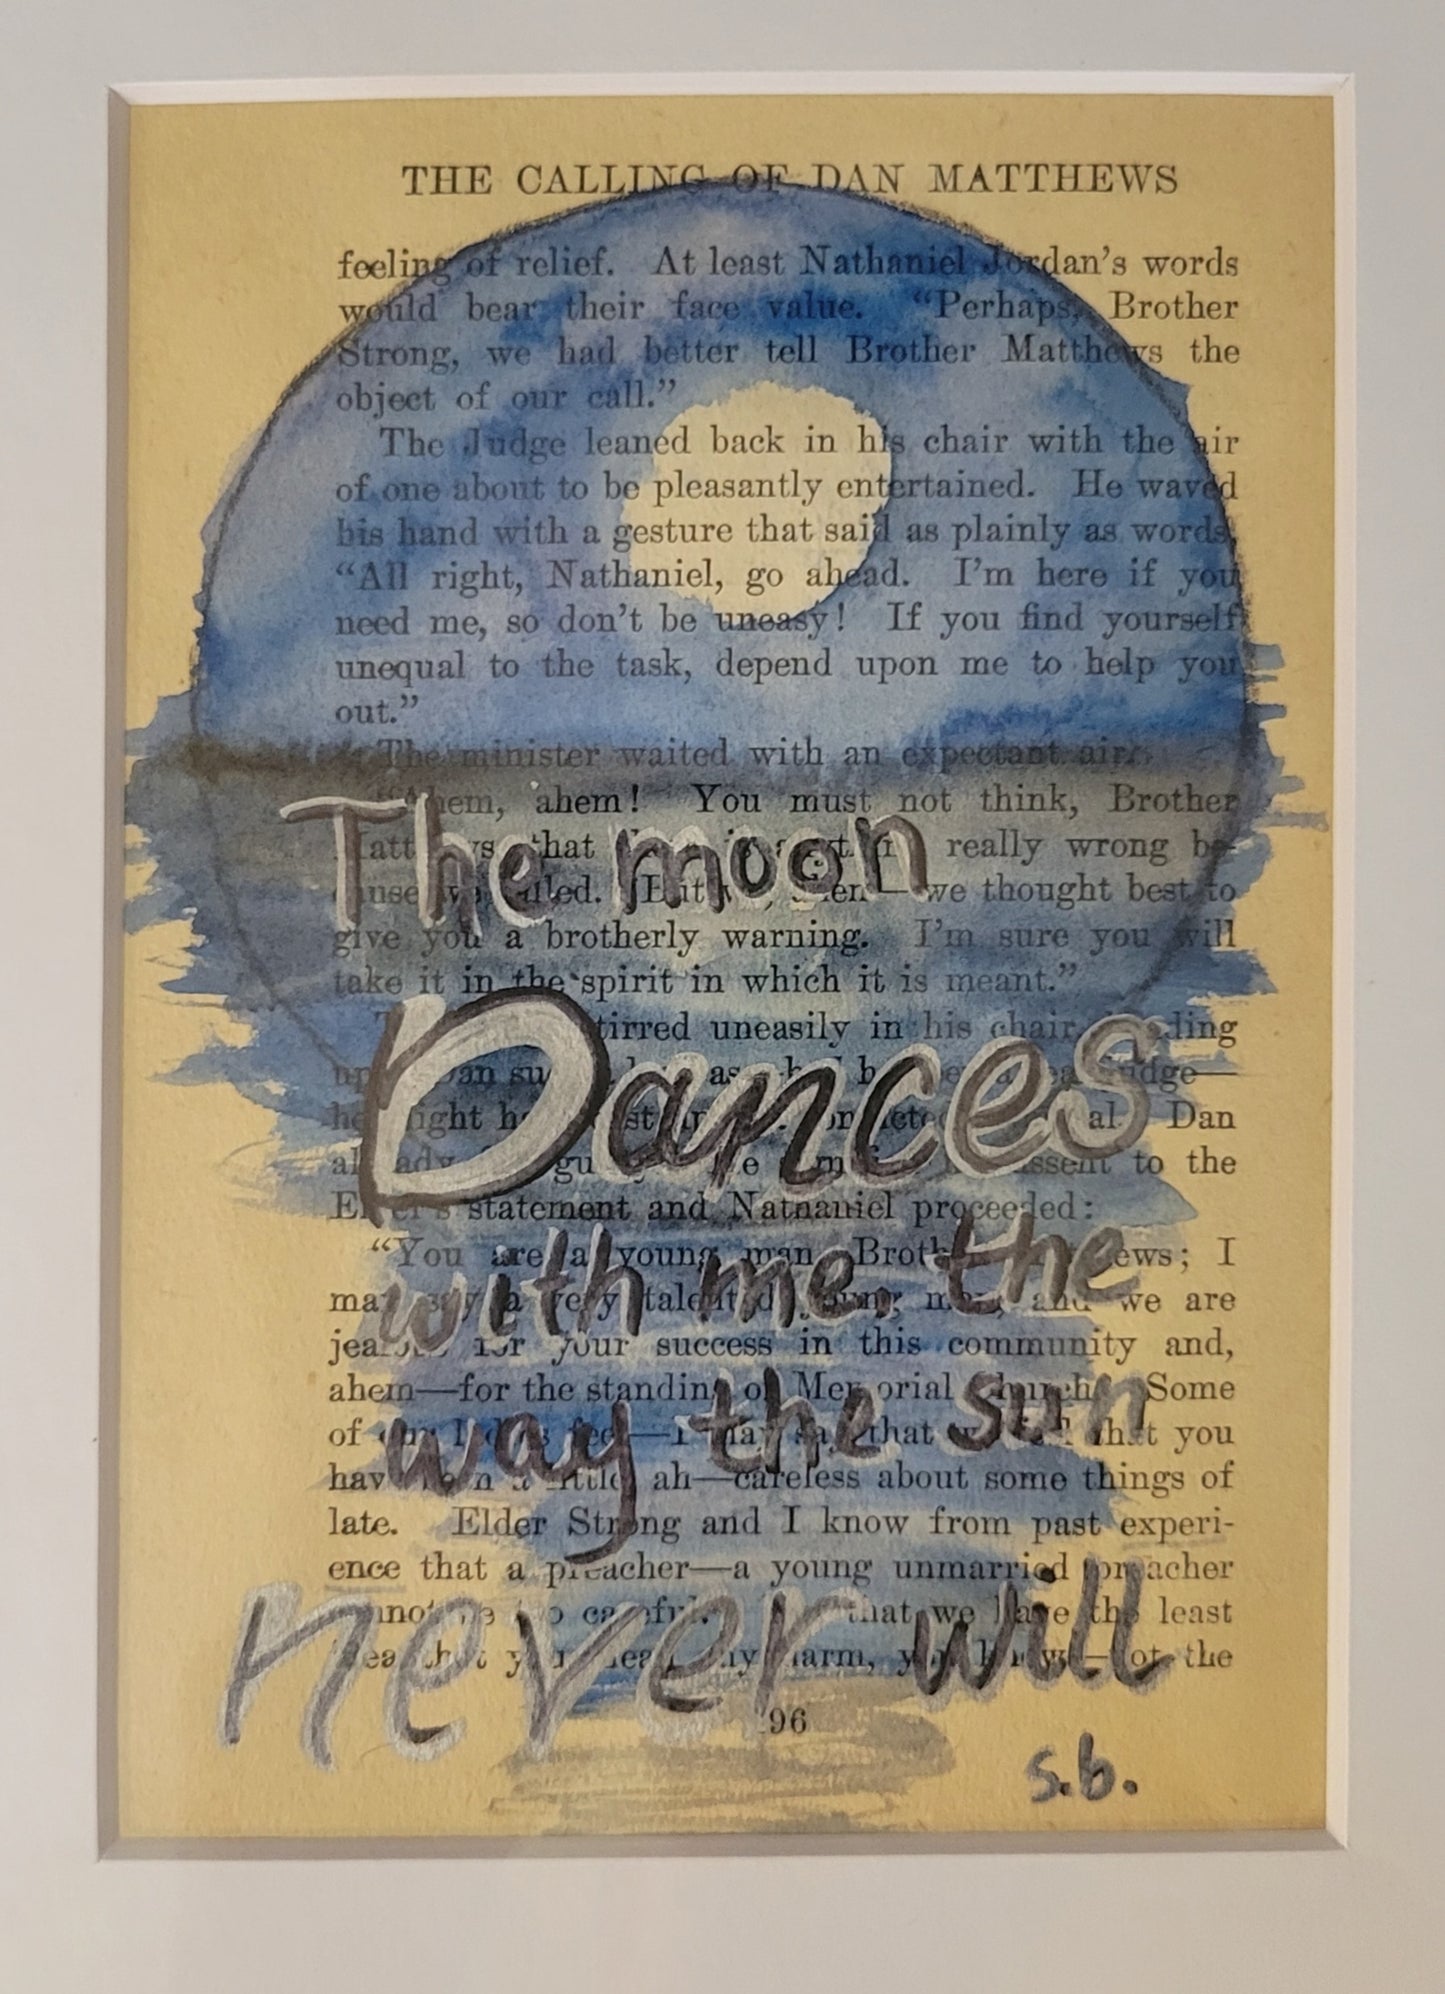 THE CALLING OF DAN MATTHEWS
feeling of relief. At least Nathaniel Jordan's words
would bear their face value. “Perhaps, Brother
Strong, we had better tell Brother Matthews the
object of our call.”
The Judge leaned back in his chair with the air
of one about to be pleasantly entertained. He waved
his hand with a gesture that said as plainly as words,
“All right, Nathaniel, go ahead. I'm here if you
need me, so don't be uneasy! If you find yourself
unequal to the task, depend upon me to help you
out.”
The minister waited with an expectant air.
“Ahem, ahem! You must not think, Brother
that really wrong be-
The moon
we thought best to
give you a brotherly warning. I'm sure you will
take it in the spirit in which it is meant.”
stirred uneasily in his chair,
Dances
as Judge—
Dan
to the
statement and Nathaniel proceeded:
“You are a young man, Brother Matthews; I
with me. the
may say a very talented young man, and we are
jealous for your success in this community and,
ahem—for the standing of Memorial Church. Some
way the sun
of our ladies feel—I may say that you
have been a little, ah—careless about some things of
late. Elder Strong and I know from past experi-
ence that a preacher—a young unmarried preacher
never will
cannot be too careful. that we have the least
that you harm, you know—not the
96
s.b.